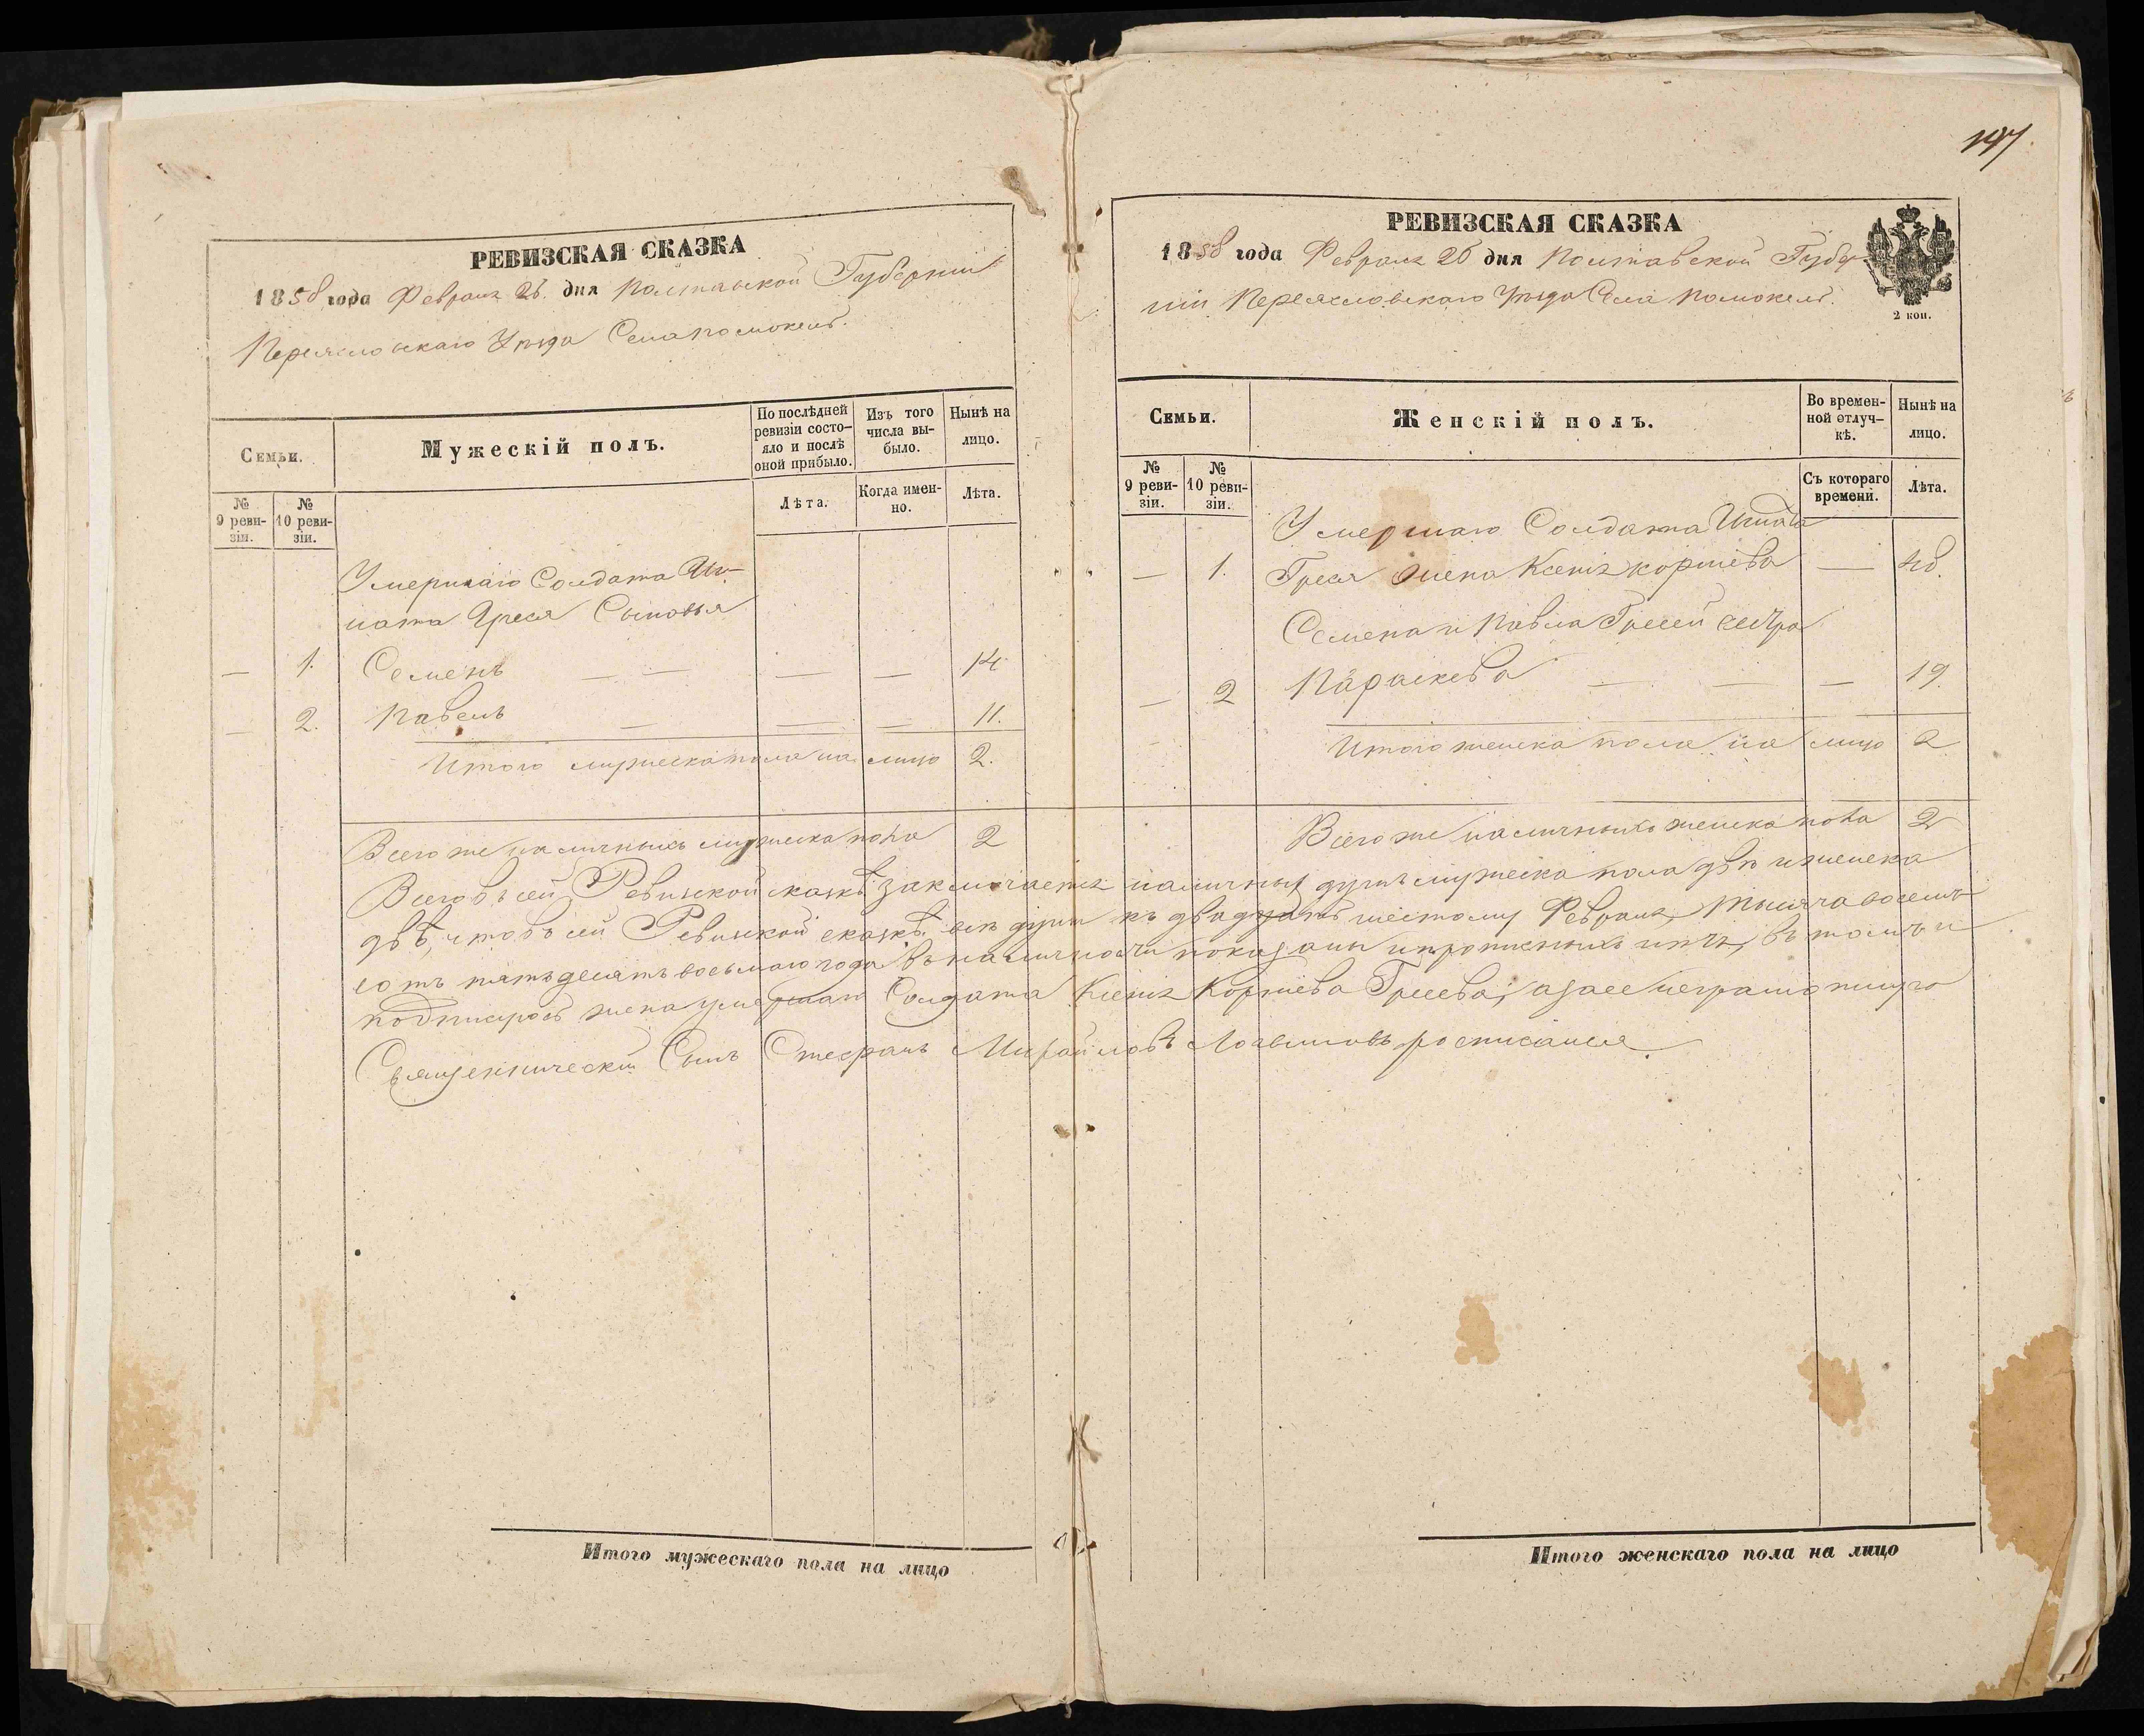 147.
РЕВИЗСКАЯ СКАЗКА
1858 года Февраля 26 дня Полтавской Губерніи
Переяславскаго Уѣзда Села Помоклей.
Семьи.
Мужескій полъ.
По послѣдней ревизіи состояло и послѣ оной прибыло.
Изъ того числа выбыло.
Нынѣ на лицо.
№ 9 ревизіи.
№ 10 ревизіи.
Лѣта.
Когда именно.
Лѣта.
Умершаго Солдата Иг-
ната Греся Сыновья
— 1. Семенъ — — — — 14
— 2. Павелъ — — — 11.
Итого мужеска пола на лицо 2.
Всего же наличныхъ мужеска пола 2
РЕВИЗСКАЯ СКАЗКА
1858 года Февраля 26 дня Полтавской Губер-
ніи Переяславскаго Уѣзда Села Помоклей.
2 коп.
Семьи.
Женскій полъ.
Во временной отлучкѣ.
Нынѣ на лицо.
№ 9 ревизіи.
№ 10 ревизіи.
Съ котораго времени.
Лѣта.
Умершаго Солдата Игната
— 1. Греся жена Ксенія Корнѣева — 48.
Семена и Павла Гресей сестра
— 2 Параскева — — — 19.
Итого женска пола на лицо 2
Всего же наличныхъ женска пола 2
Всего въ сей Ревизской сказкѣ заключается наличныхъ душъ мужеска пола двѣ и женска
двѣ, что въ сей Ревизской сказкѣ всѣ души къ двадцать шестому Февраля, тысяча восемь
сотъ пятьдесятъ восьмаго года въ наличности показаны и прописныхъ нѣтъ, въ томъ и
подписуюсь жена умершаго Солдата Ксенія Корнѣева Гресева, а за ее неграмотную
Священническій Сынъ Стефанъ Михайловъ росписался.
Итого мужескаго пола на лицо
Итого женскаго пола на лицо